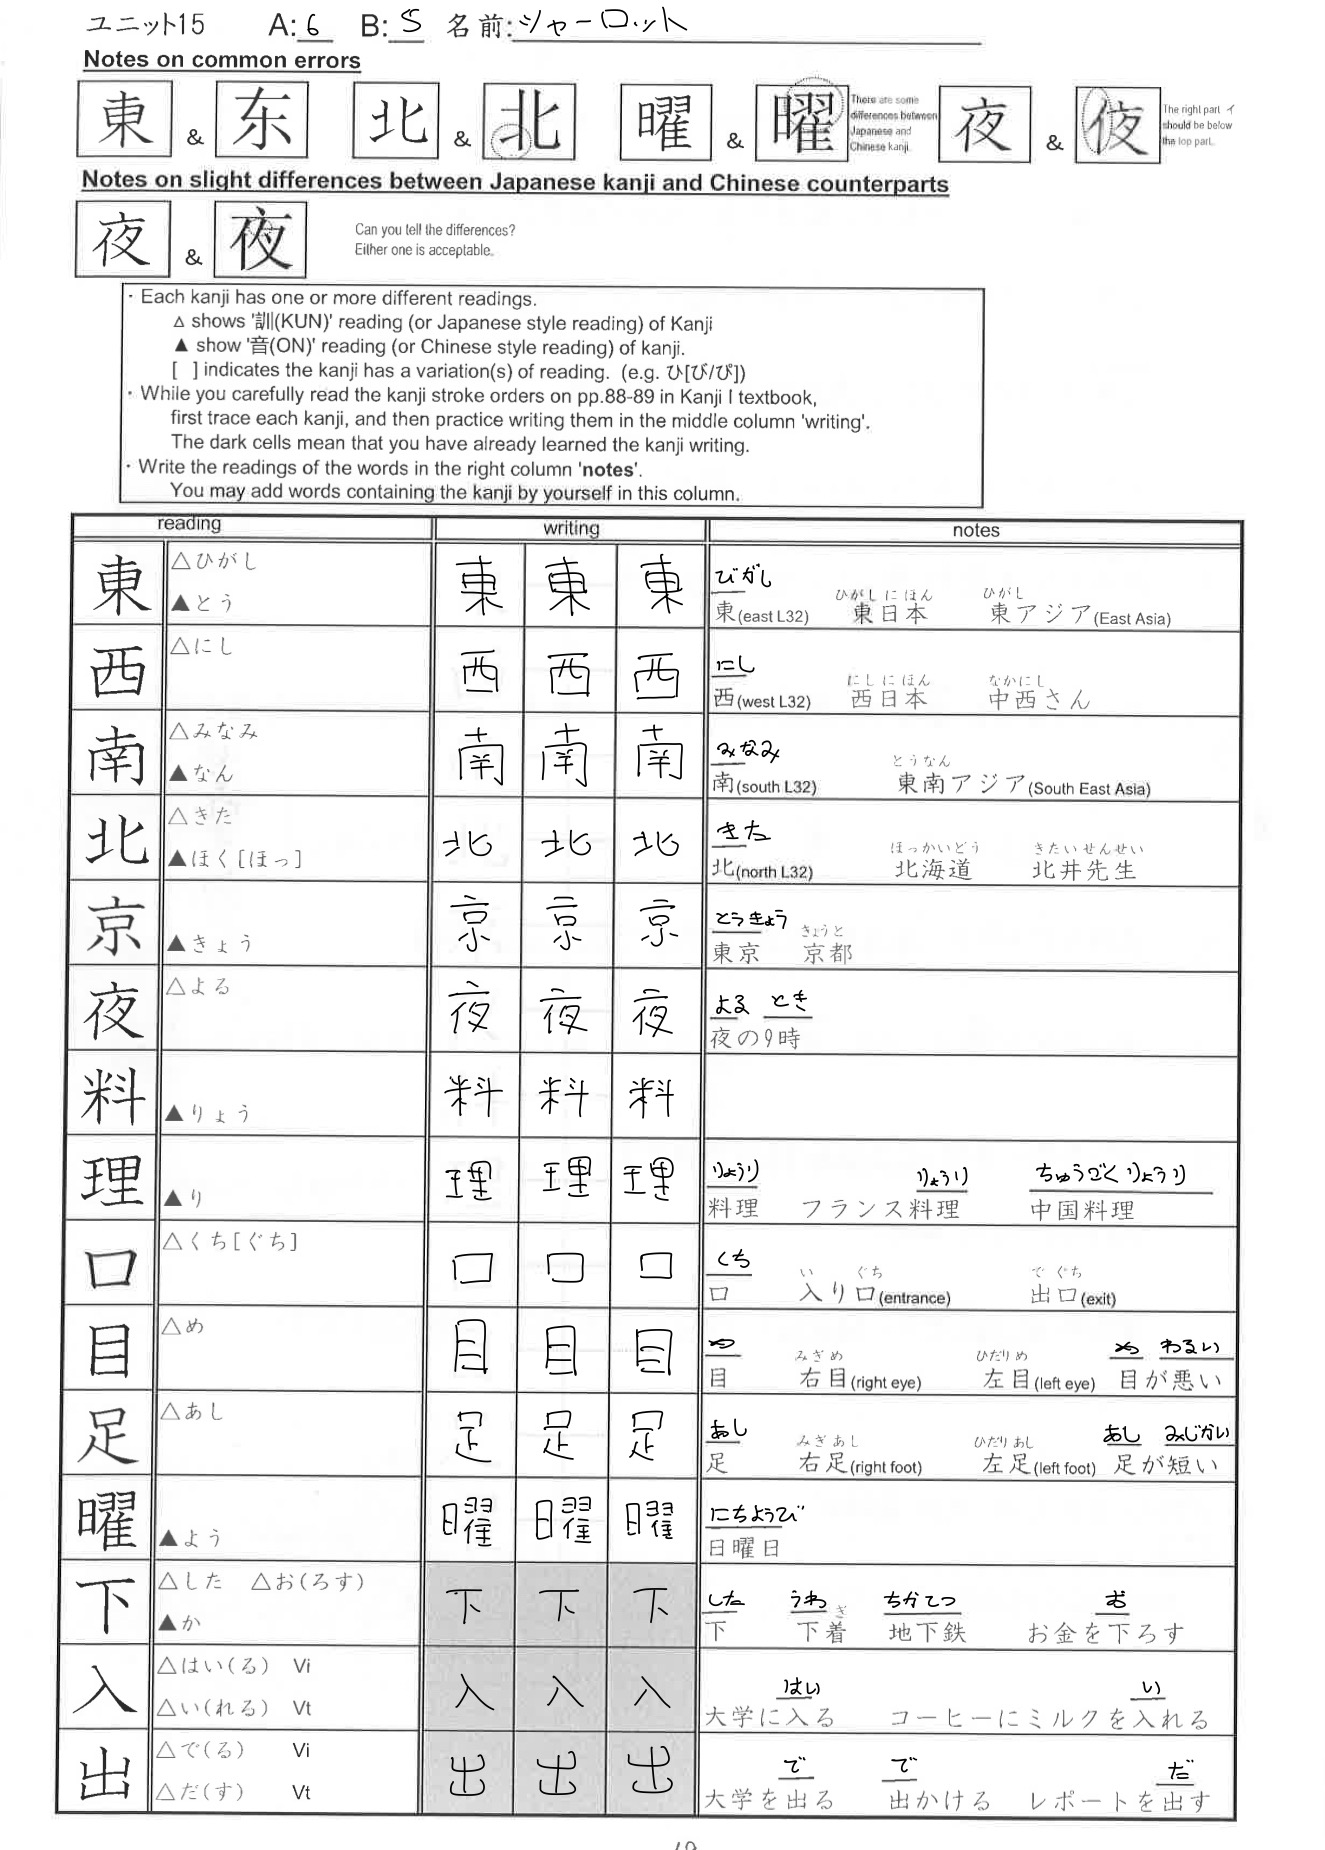 ユニット15 A: 6 B: 5 名前: シャーロット
Notes on common errors
東 & 东 北 & 北 曜 & 曜 There are some differences between Japanese and Chinese kanji. 夜 & The right part イ should be below the top part.
Notes on slight differences between Japanese kanji and Chinese counterparts
夜 & 夜 Can you tell the differences?
Either one is acceptable.
・Each kanji has one or more different readings.
△ shows '訓(KUN)' reading (or Japanese style reading) of Kanji
▲ show '音(ON)' reading (or Chinese style reading) of kanji.
[ ] indicates the kanji has a variation(s) of reading. (e.g. ひ[び/ぴ])
・While you carefully read the kanji stroke orders on pp.88-89 in Kanji I textbook,
first trace each kanji, and then practice writing them in the middle column 'writing'.
The dark cells mean that you have already learned the kanji writing.
・Write the readings of the words in the right column 'notes'.
You may add words containing the kanji by yourself in this column.
reading writing notes
東 △ひがし ▲とう 東 東 東
びがし ひがしにほん ひがし
東(east L32) 東日本 東アジア(East Asia)
西 △にし 西 西 西
にし にしにほん なかにし
西(west L32) 西日本 中西さん
南 △みなみ ▲なん 南 南 南
みなみ とうなん
南(south L32) 東南アジア(South East Asia)
北 △きた ▲ほく[ほっ] 北 北 北
きた ほっかいどう きたいせんせい
北(north L32) 北海道 北井先生
京 ▲きょう 京 京 京
とうきょう きょうと
東京 京都
夜 △よる 夜 夜 夜
よる とき
夜の9時
料 ▲りょう 料 料 料
理 ▲り 理 理 理
りょうり りょうり ちゅうごくりょうり
料理 フランス料理 中国料理
口 △くち[ぐち] 口 口 口
くち い ぐち で ぐち
口 入り口(entrance) 出口(exit)
目 △め 目 目 目
め みぎめ ひだりめ め わるい
目 右目(right eye) 左目(left eye) 目が悪い
足 △あし 足 足 足
あし みぎあし ひだりあし あし みじかい
足 右足(right foot) 左足(left foot) 足が短い
曜 ▲よう 曜 曜 曜
にちようび
日曜日
下 △した △お(ろす) ▲か 下 下 下
した うわ ぎ ちかてつ お
下 下着 地下鉄 お金を下ろす
入 △はい(る) Vi △い(れる) Vt 入 入 入
はい い
大学に入る コーヒーにミルクを入れる
出 △で(る) Vi △だ(す) Vt 出 出 出
で で だ
大学を出る 出かける レポートを出す